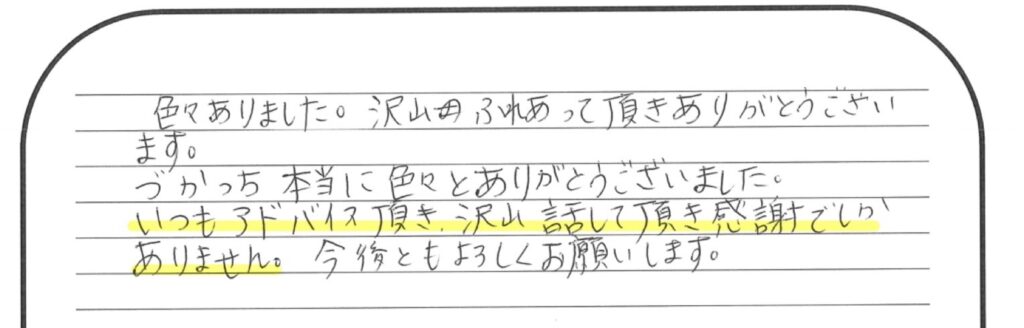 色々ありました。沢山ふれあって頂きありがとうござい
ます。
づかっち 本当に色々とありがとうございました。
いつもアドバイス頂き、沢山 話して頂き感謝でしか
ありません。今後ともよろしくお願いします。